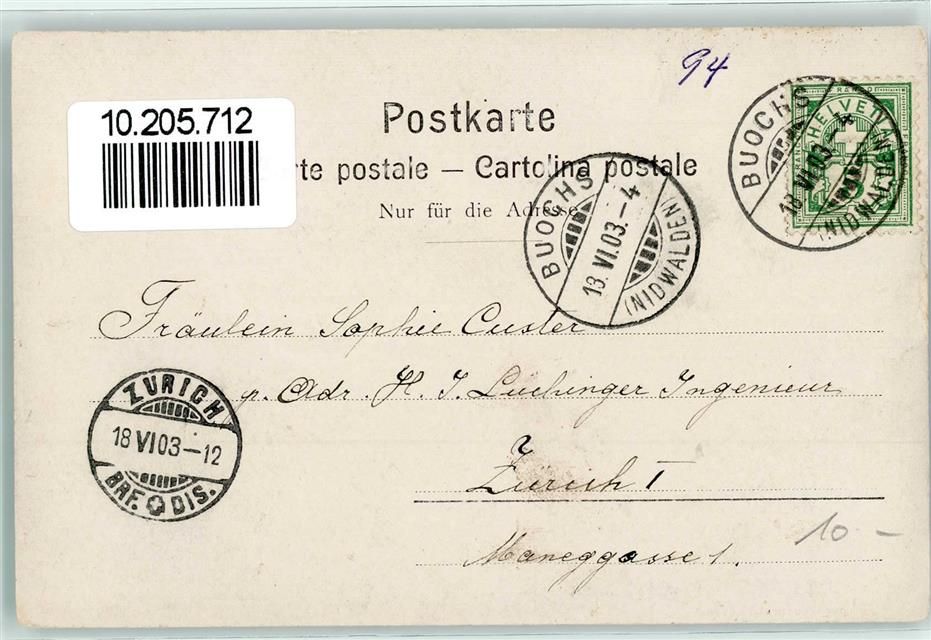 94
10.205.712
Postkarte
rte postale — Cartolina postale
Nur für die Adresse
BUOCHS
18.VI.03.–4
(NIDWALDEN)
BUOCHS
18 VI 03.–4
(NIDWALDEN)
HELVETIA
FRANCO
5
Fräulein Sophie Custer
p. Adr. H. J. Lüchinger Ingenieur
Zürich I
Maneggasse 1.
ZÜRICH
18 VI 03–12
BRF. DIS.
10 –